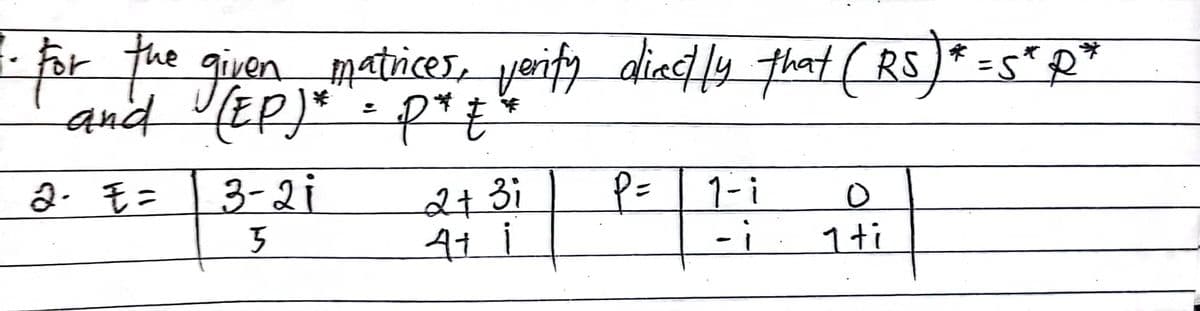 1. For the given matrices, verify directly that (RS)* = S* R*
and (EP)* = P* E*
2. E = | 3-2i 2+ 3i | P = | 1-i 0 |
5 4+ i -i 1+i